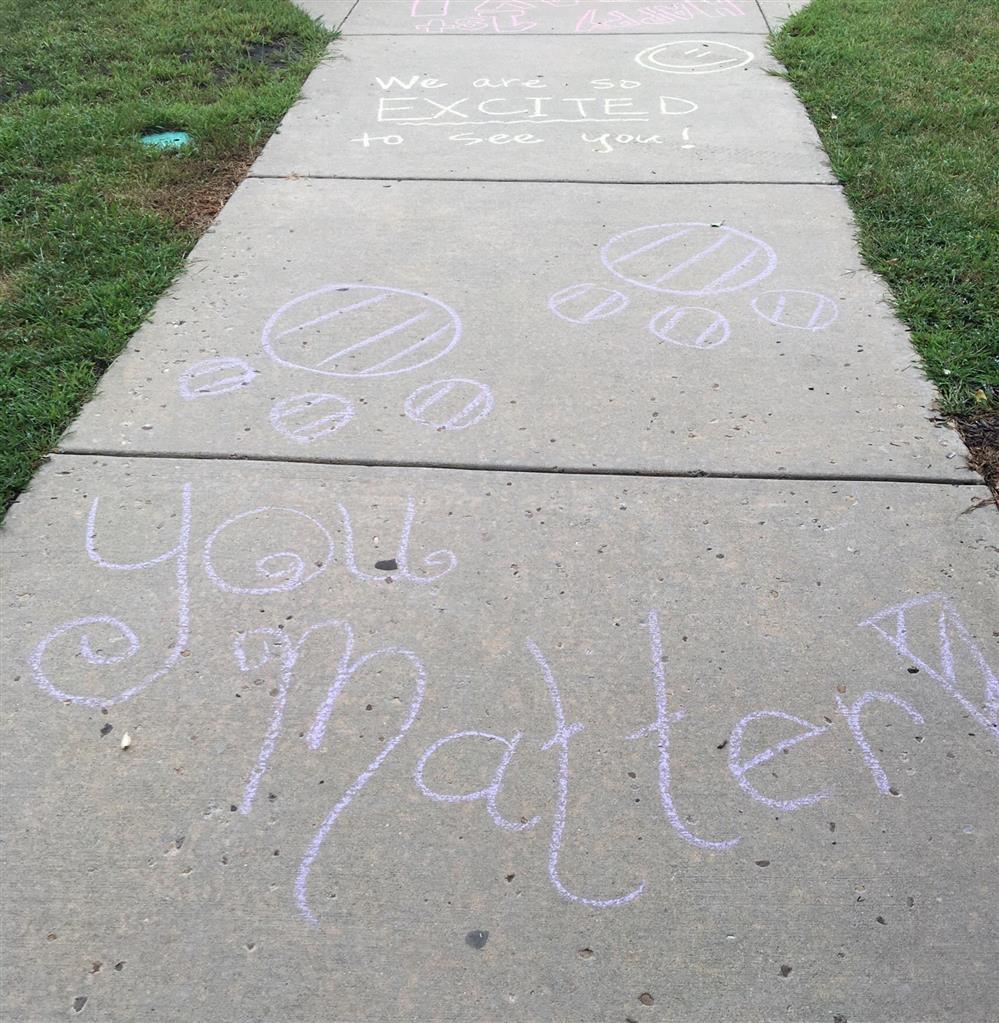 We are so
EXCITED
to see you!
you
matter